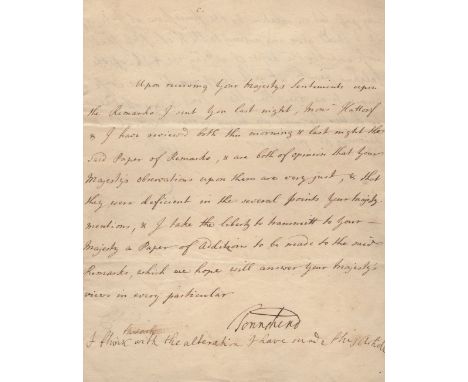 Upon receiving Your Majesty's Sentiments upon
the Remarks I sent You last night, Mons.r Hattorf
& I have review'd both this morning & last night the
said Paper of Remarks, & are both of opinion that Your
Majesty's observations upon them are very just, & that
they were deficient in the several points Your Majesty
mentions, & I take the liberty to transmitt to Your
Majesty a Paper of Additions to be made to the said
Remarks, which we hope will answer Your Majesty's
views in every particular
Townshend
I think with the alteration I have made this